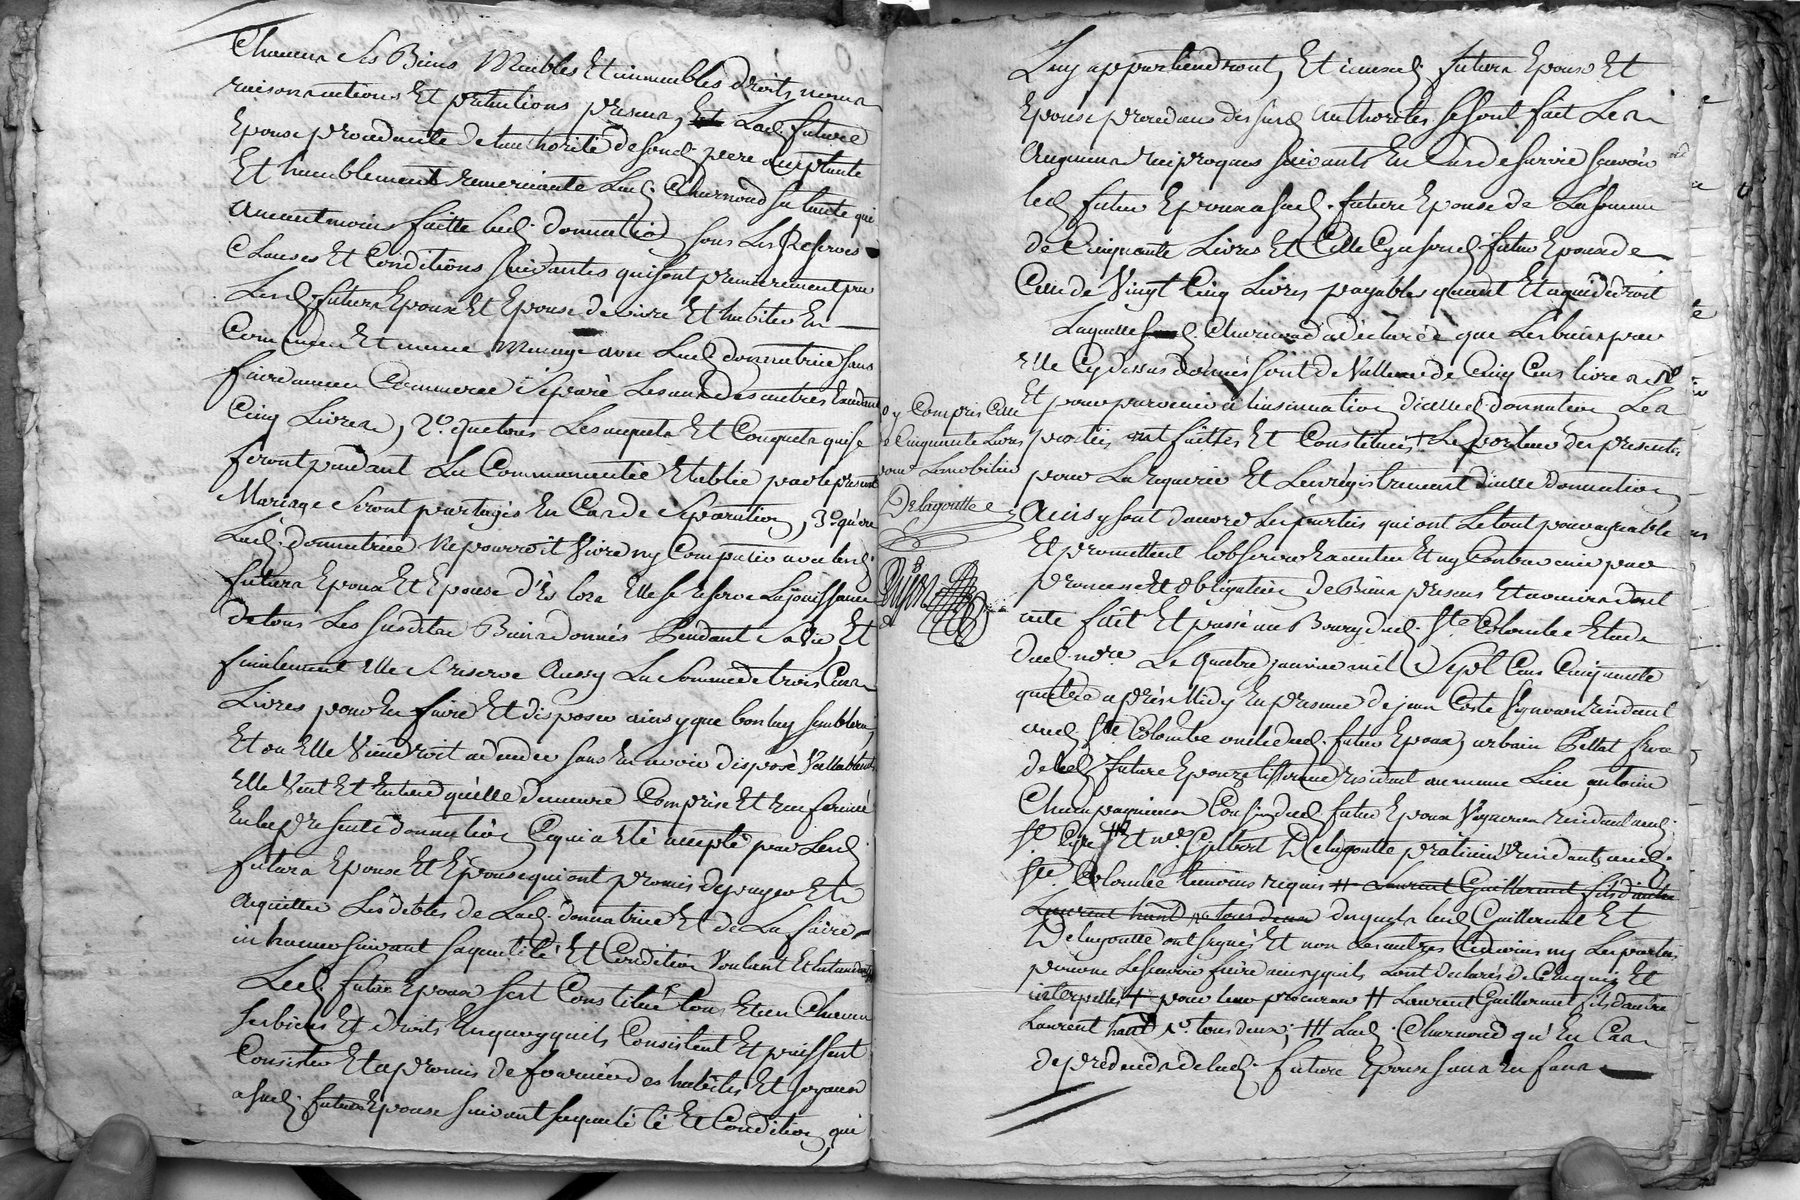 Chacun ses Biens Meubles Et immeubles droits noms
raisons actions Et pretentions presens, Lad. future
Epouse procedante de lauthorité desond. pere acceptante
Et humblement remerciante Lad. Charnond sa tante qui
a neantmoins faitte lad. donnation sous Les Reserves
Clauses Et Conditions suivantes qui sont premierement par
Lesd. futurs Epoux Et Epouse de vivre Et habiter En
Commun Et meme Menage avec Lad. donnatrice sans
faire aucun Commerce Separé Les uns des autres Excedant
Cinq Livres, 2.o que tous Les acquets Et Conquets qui se
feront pendant La Communautée Etablie par le present
Mariage Seront partagés En Cas de Separation, 3.o qu'ou
Lad. donnatrice Ne pourroit Vivre ny Compatir avec lesd.
futurs Epoux Et Epouse d'Es lors Elle se reserve La jouissance
de tous Les Susdits Biens donnés Pendant Sa Vie, Et
finalement Elle Se reserve Aussy La Somme de trois Cens
Livres pour En faire Et disposer ainsy que bon luy semblera,
Et ou Elle Viendroit a deceder sans En avoir disposé Vallablement
Elle Veut Et Entend qu'elle demeure Comprise Et Renfermée
En la presente donnation Ce qui a Eté accepté par Lesd.
futurs Epoux Et Epouse qui ont promis de payer Et
acquitter Les debtes de Lad. donnatrice Et de La faire
inhumer suivant sa qualité Et Condition Voulant Et Entendant
Led. futur Epoux S'est Constitué tous Et un Chacun
ses biens Et droits En quoy qu'ils Consistent Et puissent
Consister Et a promis de fournir des habits Et joyaux
a sad. future Epouse suivant sa qualité Et Condition, qui
Luy appartiendront, Et iceuxd. futurs Epoux Et
Epouse procedans des susd. authorités se sont fait Les
Augmens reciproques suivants En Cas de survie sçavoir
led. futur Epoux a sad. future Epouse de La somme
de Cinquante Livres Et Celle Cy a sond. futur Epoux de
Celle de Vingt Cinq Livres payables quant Et a qui de droit
Laquelle Charnond a declarée que Les biens par
Elle Cy dessus donnés sont de Valleur de Cinq Cens livres
Et pour parvenir a l'insinuation d'icelle donnation Les
parties ont faittes Et Constitués + Le porteur des presentes
pour La requerir Et L'enregistrement d'icelle donnation
y Compris Celle
de Cinquante Livres
pour Le mobilier
Delagoutte
Ainsy sont d'accord Les parties qui ont Le tout pour agreable
Et promettent l'observer Executer Et ny Contrevenir par
promesse Et obligation de Biens presens Et avenir dont
acte fait Et passé au Bourg dud. Ste Colombe Etude
dud. nore Le quatre janvier mil Sept Cens Cinquante
quatre aprés Midy En presence de jean Coste Vigneron residant
aud. Ste Colombe oncle dud. futur Epoux, urbain Pellat frere
de lad. future Epouze tisserand residant au meme Lieu antoine
Champagneux Cousin dud. futur Epoux Vigneron residant aud.
St. Cyr Et me. Gilbert Delagoutte praticien residant aud.
Ste Colombe temoins requis ++ Laurent Guillermet fils d'autre
Laurent tous deux desquels led. Guillermet Et
Delagoutte ont signés Et non Les autres temoins ny Les parties
pour ne sçavoir faire ainsy qu'ils L'ont declarés de Ce requis Et
interpellés + pour leur procureur ++ Laurent Guillermet fils d'autre
Laurent tous deux; +++ Lad. Charnond qu'En Cas
de predeceds de lad. future Epouse sans Enfans